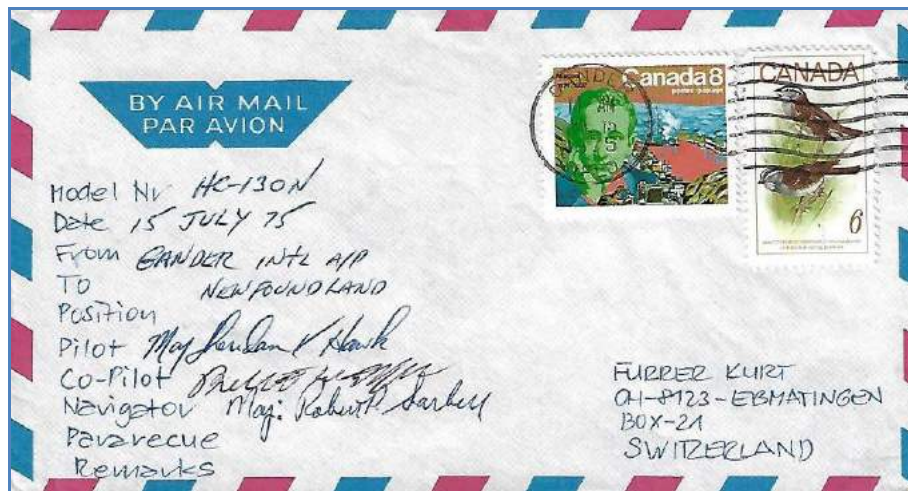 BY AIR MAIL
PAR AVION
Canada 8
postes-postage
CANADA
6
GANDER
Model Nr HC-130N
Date 15 JULY 75
From GANDER INTL A/P
To NEWFOUNDLAND
Position
Pilot Maj
Co-Pilot
Navigator Maj. Robert
Pararecue
Remarks
FURRER KURT
CH-8123-EBMATINGEN
BOX-21
SWITZERLAND